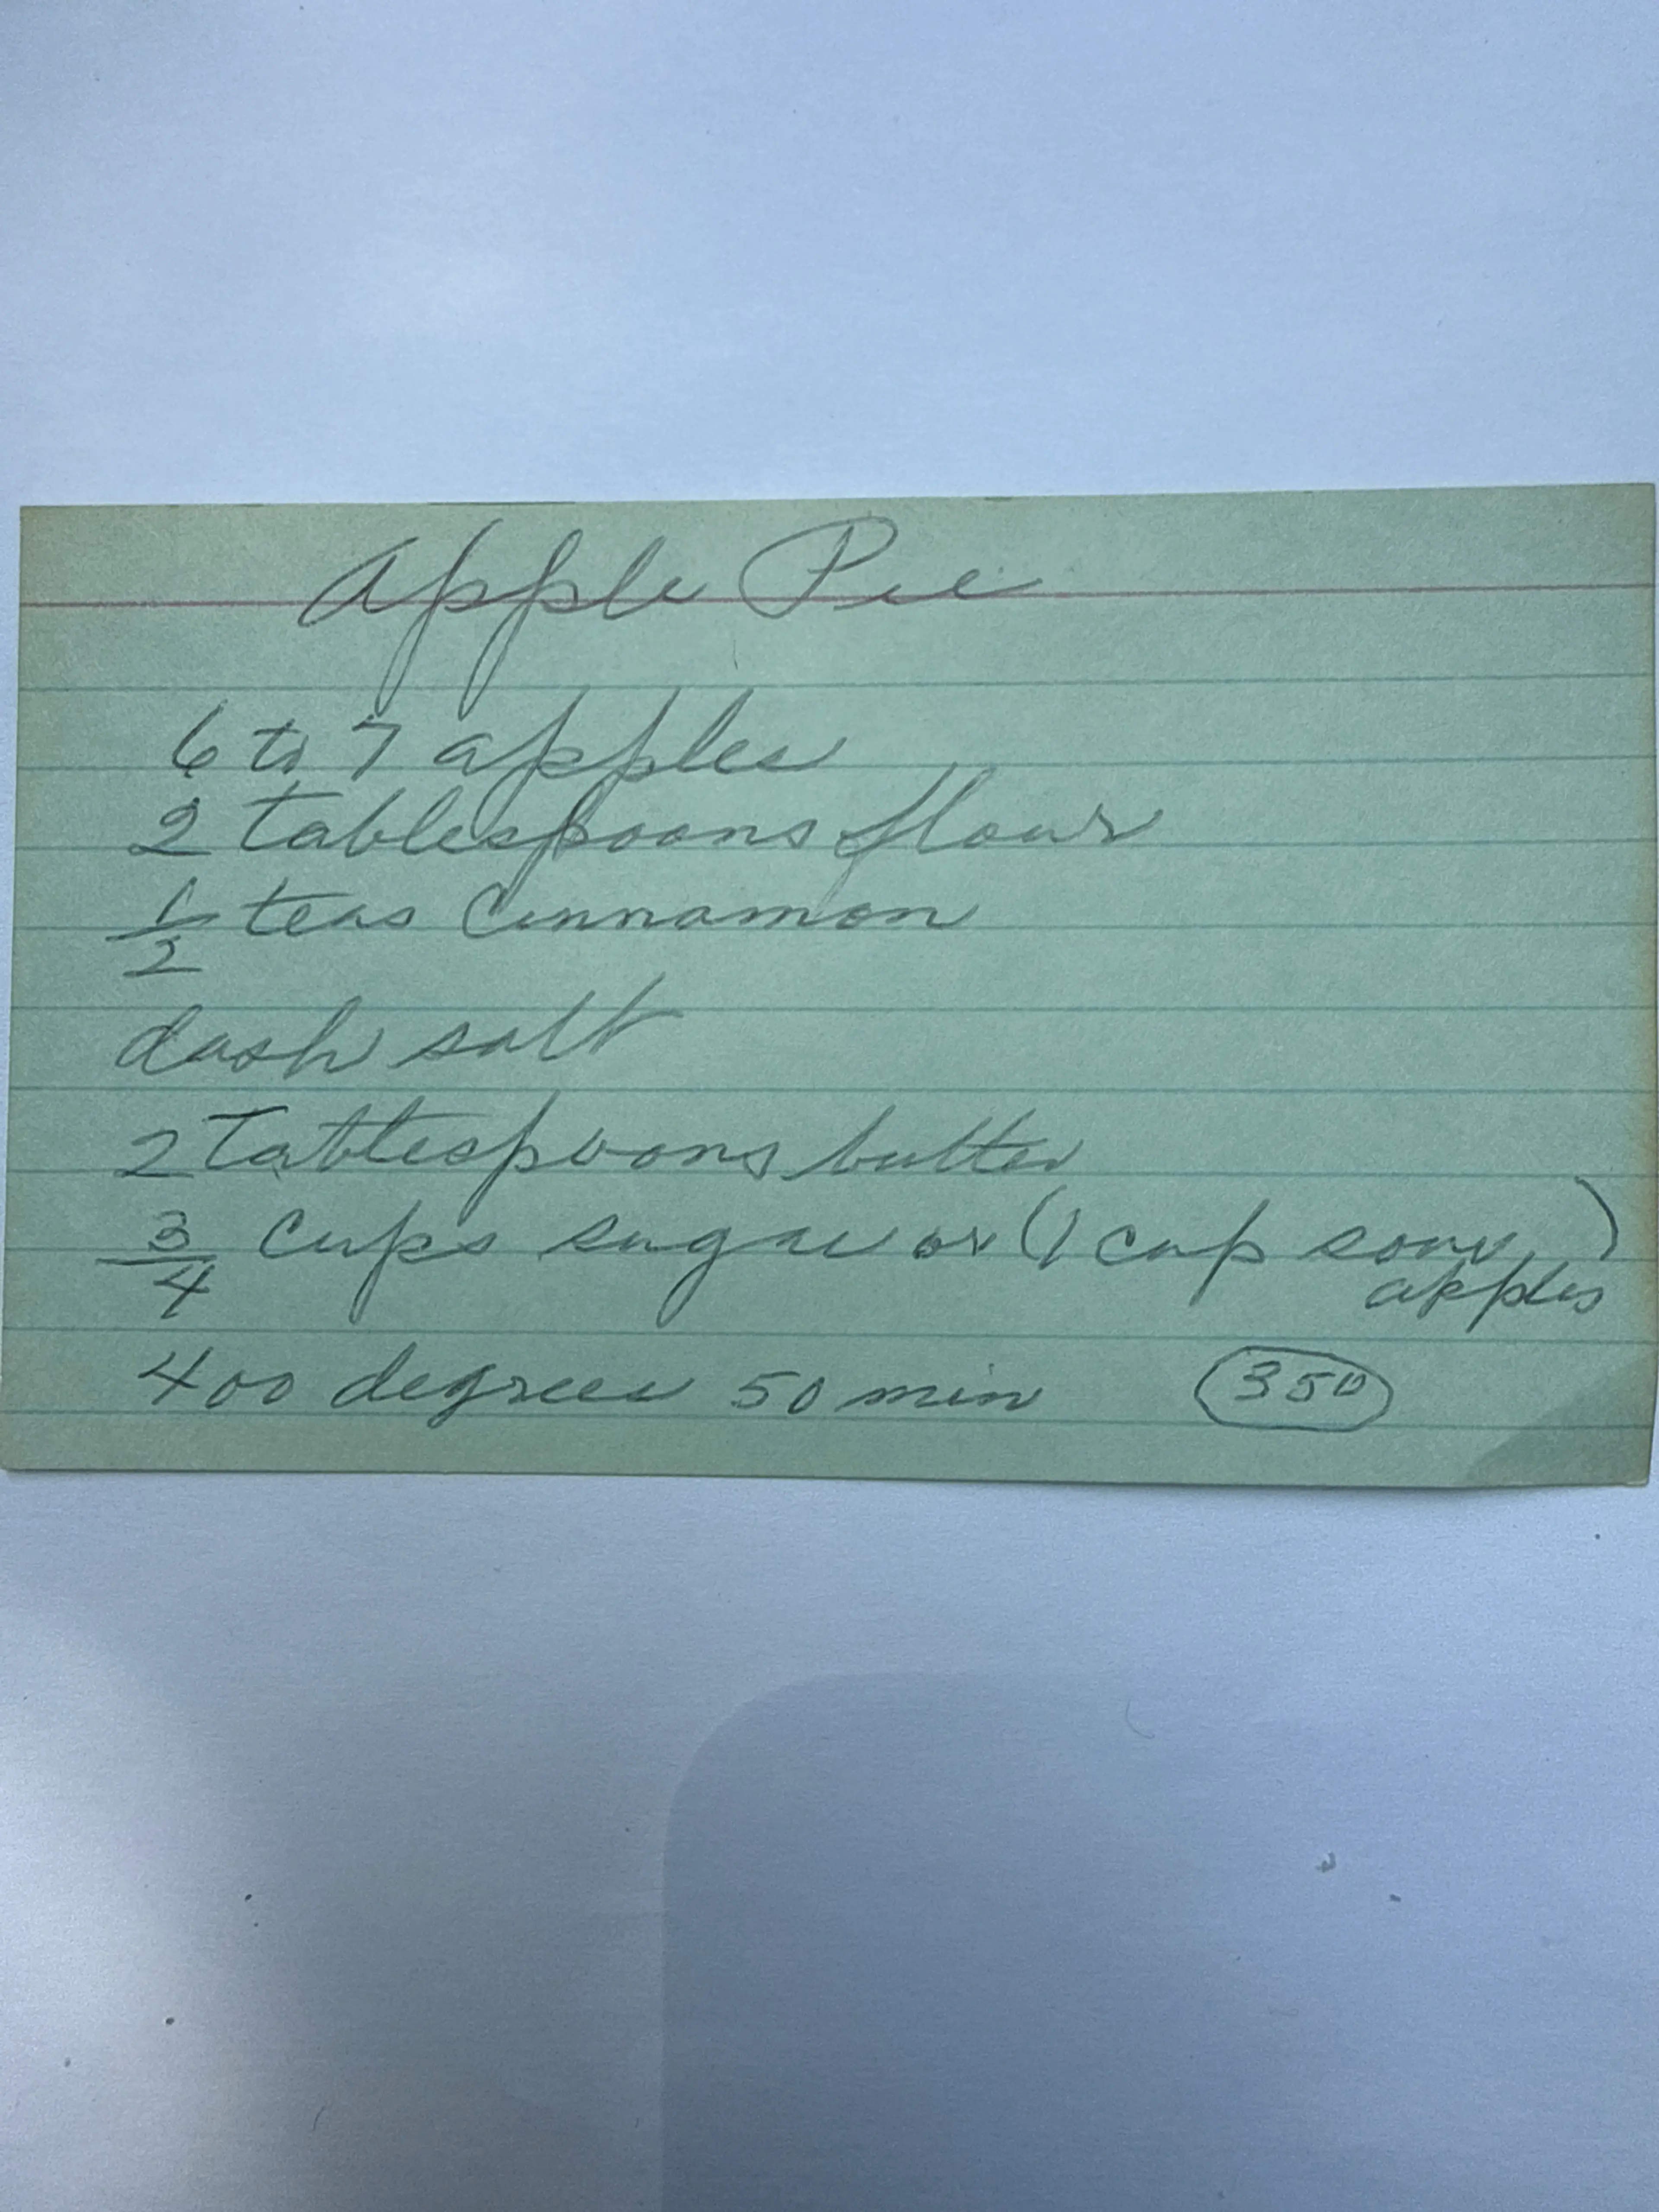 Apple Pie
6 to 7 apples
2 tablespoons flour
1/2 teas Cinnamon
dash salt
2 Tablespoons butter
3/4 Cups sugar or (1 cup sour apples)
400 degrees 50 min 350